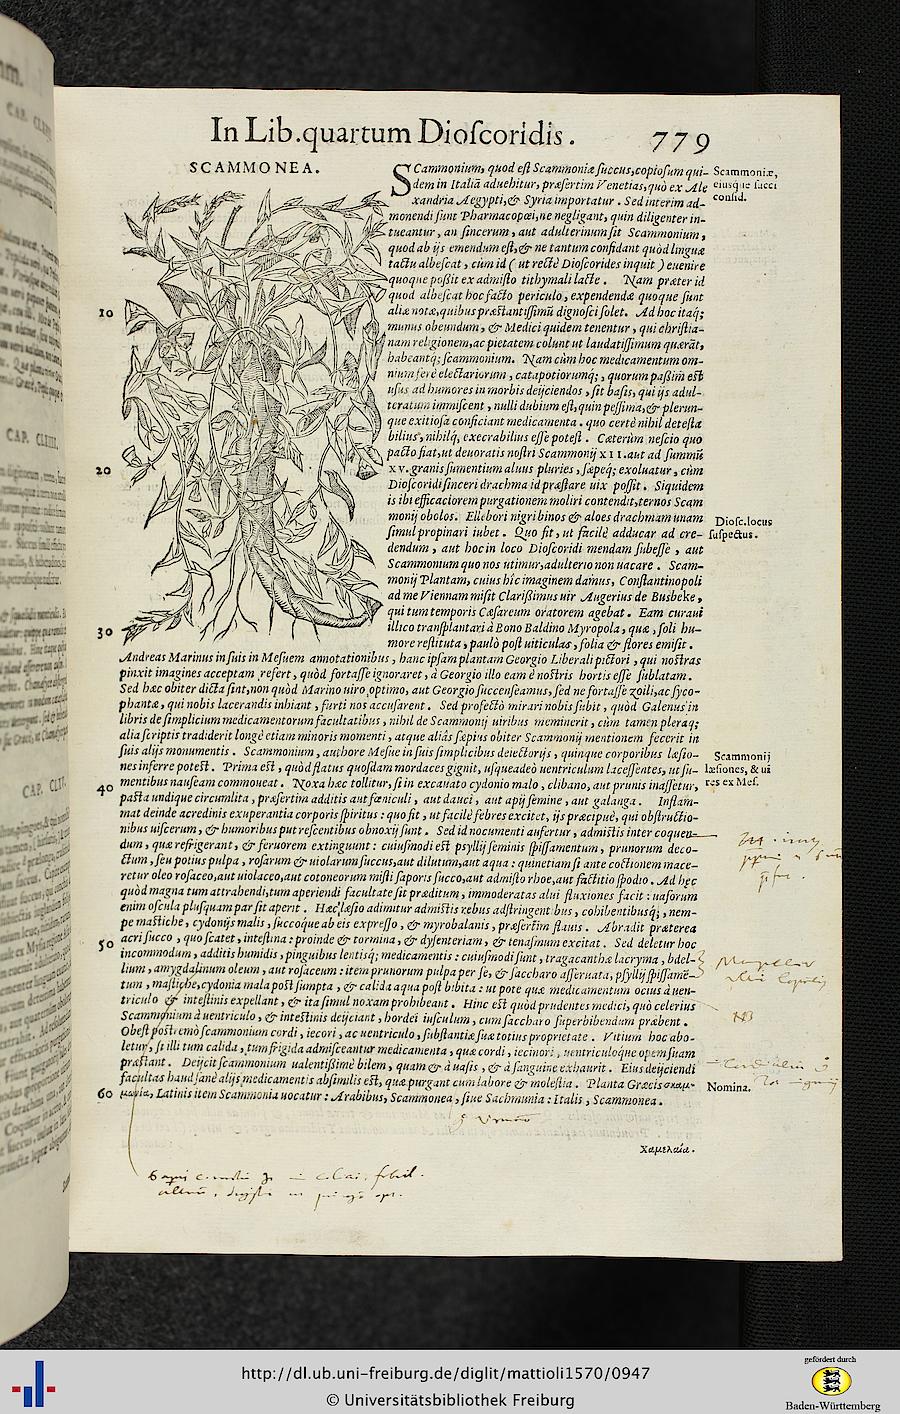 In Lib.quartum Dioſcoridis. 779
SCAMMONEA.
SCammonium, quod eſt Scammoniæ ſuccus, copioſum qui-
dem in Italiā aduehitur, præſertim Venetias, quò ex Ale
xandria Aegypti, & Syria importatur. Sed interim ad-
monendi ſunt Pharmacopœi, ne negligant, quin diligenter in-
tueantur, an ſincerum, aut adulterinum ſit Scammonium,
quod ab ijs emendum eſt, & ne tantum confidant quòd linguæ
tactu albeſcat, cùm id (ut rectè Dioſcorides inquit) euenire
quoque poßit ex admiſto tithymali lacte. Nam præter id
quod albeſcat hoc facto periculo, expendendæ quoque ſunt
10 aliæ notæ, quibus præſtantiſſimū dignoſci ſolet. Ad hoc itaq;
munus obeundum, & Medici quidem tenentur, qui chriſtia-
nam religionem, ac pietatem colunt ut laudatiſſimum quærāt,
habeantq; ſcammonium. Nam cùm hoc medicamentum om-
nium ferè electariorum, catapotiorumq;, quorum paßim eſt
uſus ad humores in morbis deijciendos, ſit baſis, qui ijs adul-
teratum immiſcent, nulli dubium eſt, quin peſſima, & plerun-
que exitioſa conficiant medicamenta. quo certè nihil deteſta
bilius, nihilq; execrabilius eſſe poteſt. Cæterùm neſcio quo
pacto fiat, ut deuoratis noſtri Scammonij XII. aut ad ſummū
20 XV. granis ſumentium aluus pluries, ſæpeq; exoluatur, cùm
Dioſcoridi ſinceri drachma id præſtare uix poſſit. Siquidem
is ibi efficaciorem purgationem moliri contendit, ternos Scam
monij obolos. Ellebori nigri binos & aloes drachmam unam
ſimul propinari iubet. Quo fit, ut facilè adducar ad cre-
dendum, aut hoc in loco Dioſcoridi mendam ſubeſſe, aut
Scammonium quo nos utimur, adulterio non uacare. Scam-
monij Plantam, cuius hîc imaginem damus, Conſtantinopoli
ad me Viennam miſit Clarißimus uir Augerius de Busbeke,
qui tum temporis Cæſareum oratorem agebat. Eam curaui
30 illico tranſplantari à Bono Baldino Myropola, quæ, ſoli hu-
more reſtituta, paulò poſt uiticulas, folia & flores emiſit.
Andreas Marinus in ſuis in Meſuem annotationibus, hanc ipſam plantam Georgio Liberali pictori, qui noſtras
pinxit imagines acceptam refert, quòd fortaſſe ignoraret, à Georgio illo eam è noſtris hortis eſſe ſublatam.
Sed hæc obiter dicta ſint, non quòd Marino uiro optimo, aut Georgio ſuccenſeamus, ſed ne fortaſſe zoili, ac ſyco-
phantæ, qui nobis lacerandis inhiant, furti nos accuſarent. Sed profectò mirari nobis ſubit, quòd Galenus in
libris de ſimplicium medicamentorum facultatibus, nihil de Scammonij uiribus meminerit, cùm tamen pleraq;
alia ſcriptis tradiderit longè etiam minoris momenti, atque aliàs ſæpius obiter Scammonij mentionem fecerit in
ſuis alijs monumentis. Scammonium, authore Meſue in ſuis ſimplicibus deiectorijs, quinque corporibus læſio-
nes inferre poteſt. Prima eſt, quòd flatus quoſdam mordaces gignit, uſqueadeò uentriculum laceſſentes, ut ſu-
40 mentibus nauſeam commoueat. Noxa hæc tollitur, ſi in excauato cydonio malo, clibano, aut prunis inaſſetur,
paſta undique circumlita, præſertim additis aut fœniculi, aut dauci, aut apij ſemine, aut galanga. Inflam-
mat deinde acredinis exuperantia corporis ſpiritus: quo fit, ut facilè febres excitet, ijs præcipuè, qui obſtructio-
nibus uiſcerum, & humoribus putreſcentibus obnoxij ſunt. Sed id nocumenti aufertur, admiſtis inter coquen-
dum, quæ refrigerant, & feruorem extinguunt: cuiuſmodi eſt pſyllij ſeminis ſpiſſamentum, prunorum deco-
ctum, ſeu potius pulpa, roſarum & uiolarum ſuccus, aut dilutum, aut aqua: quinetiam ſi ante coctionem mace-
retur oleo roſaceo, aut uiolaceo, aut cotoneorum miſti ſaporis ſucco, aut admiſto rhoe, aut factitio ſpodio. Ad hęc
quòd magna tum attrahendi, tum aperiendi facultate ſit præditum, immoderatas alui fluxiones facit: uaſorum
enim oſcula pluſquam par ſit aperit. Hæc læſio adimitur admiſtis rebus adſtringentibus, cohibentibusq;, nem-
pe maſtiche, cydonijs malis, ſuccoque ab eis expreſſo, & myrobalanis, præſertim flauis. Abradit præterea
50 acri ſucco, quo ſcatet, inteſtina: proinde & tormina, & dyſenteriam, & tenaſmum excitat. Sed deletur hoc
incommodum, additis humidis, pinguibus lentisq; medicamentis: cuiuſmodi ſunt, tragacanthæ lacryma, bdel-
lium, amygdalinum oleum, aut roſaceum: item prunorum pulpa per ſe, & ſaccharo aſſeruata, pſyllij ſpiſſamē-
tum, maſtiche, cydonia mala poſt ſumpta, & calida aqua poſt bibita: ut pote quæ medicamentum ocius à uen-
triculo & inteſtinis expellant, & ita ſimul noxam prohibeant. Hinc eſt quòd prudentes medici, quò celerius
Scammonium à uentriculo, & inteſtinis deijciant, hordei iuſculum, cum ſaccharo ſuperbibendum præbent.
Obeſt poſtremò ſcammonium cordi, iecori, ac uentriculo, ſubſtantiæ ſuæ totius proprietate. Vitium hoc abo-
letur, ſi illi tum calida, tum frigida admiſceantur medicamenta, quæ cordi, iecinori, uentriculoque opem ſuam
præſtant. Deijcit ſcammonium ualentiſſimè bilem, quam & à uaſis, & à ſanguine exhaurit. Eius deijciendi
facultas haud ſanè alijs medicamentis abſimilis eſt, quæ purgant cum labore & moleſtia. Planta Græcis σκαμ-
60 μωνία, Latinis item Scammonia uocatur: Arabibus, Scammonea, ſiue Sachmunia: Italis, Scammonea.
χαμελαία.
Scammoniæ,
eiusque ſucci
conſid.
Dioſc. locus
ſuſpectus.
Scammonij
læſiones, & ui
res ex Meſ.
NB
Nomina.
http://dl.ub.uni-freiburg.de/diglit/mattioli1570/0947
© Universitätsbibliothek Freiburg
gefördert durch
Baden-Württemberg